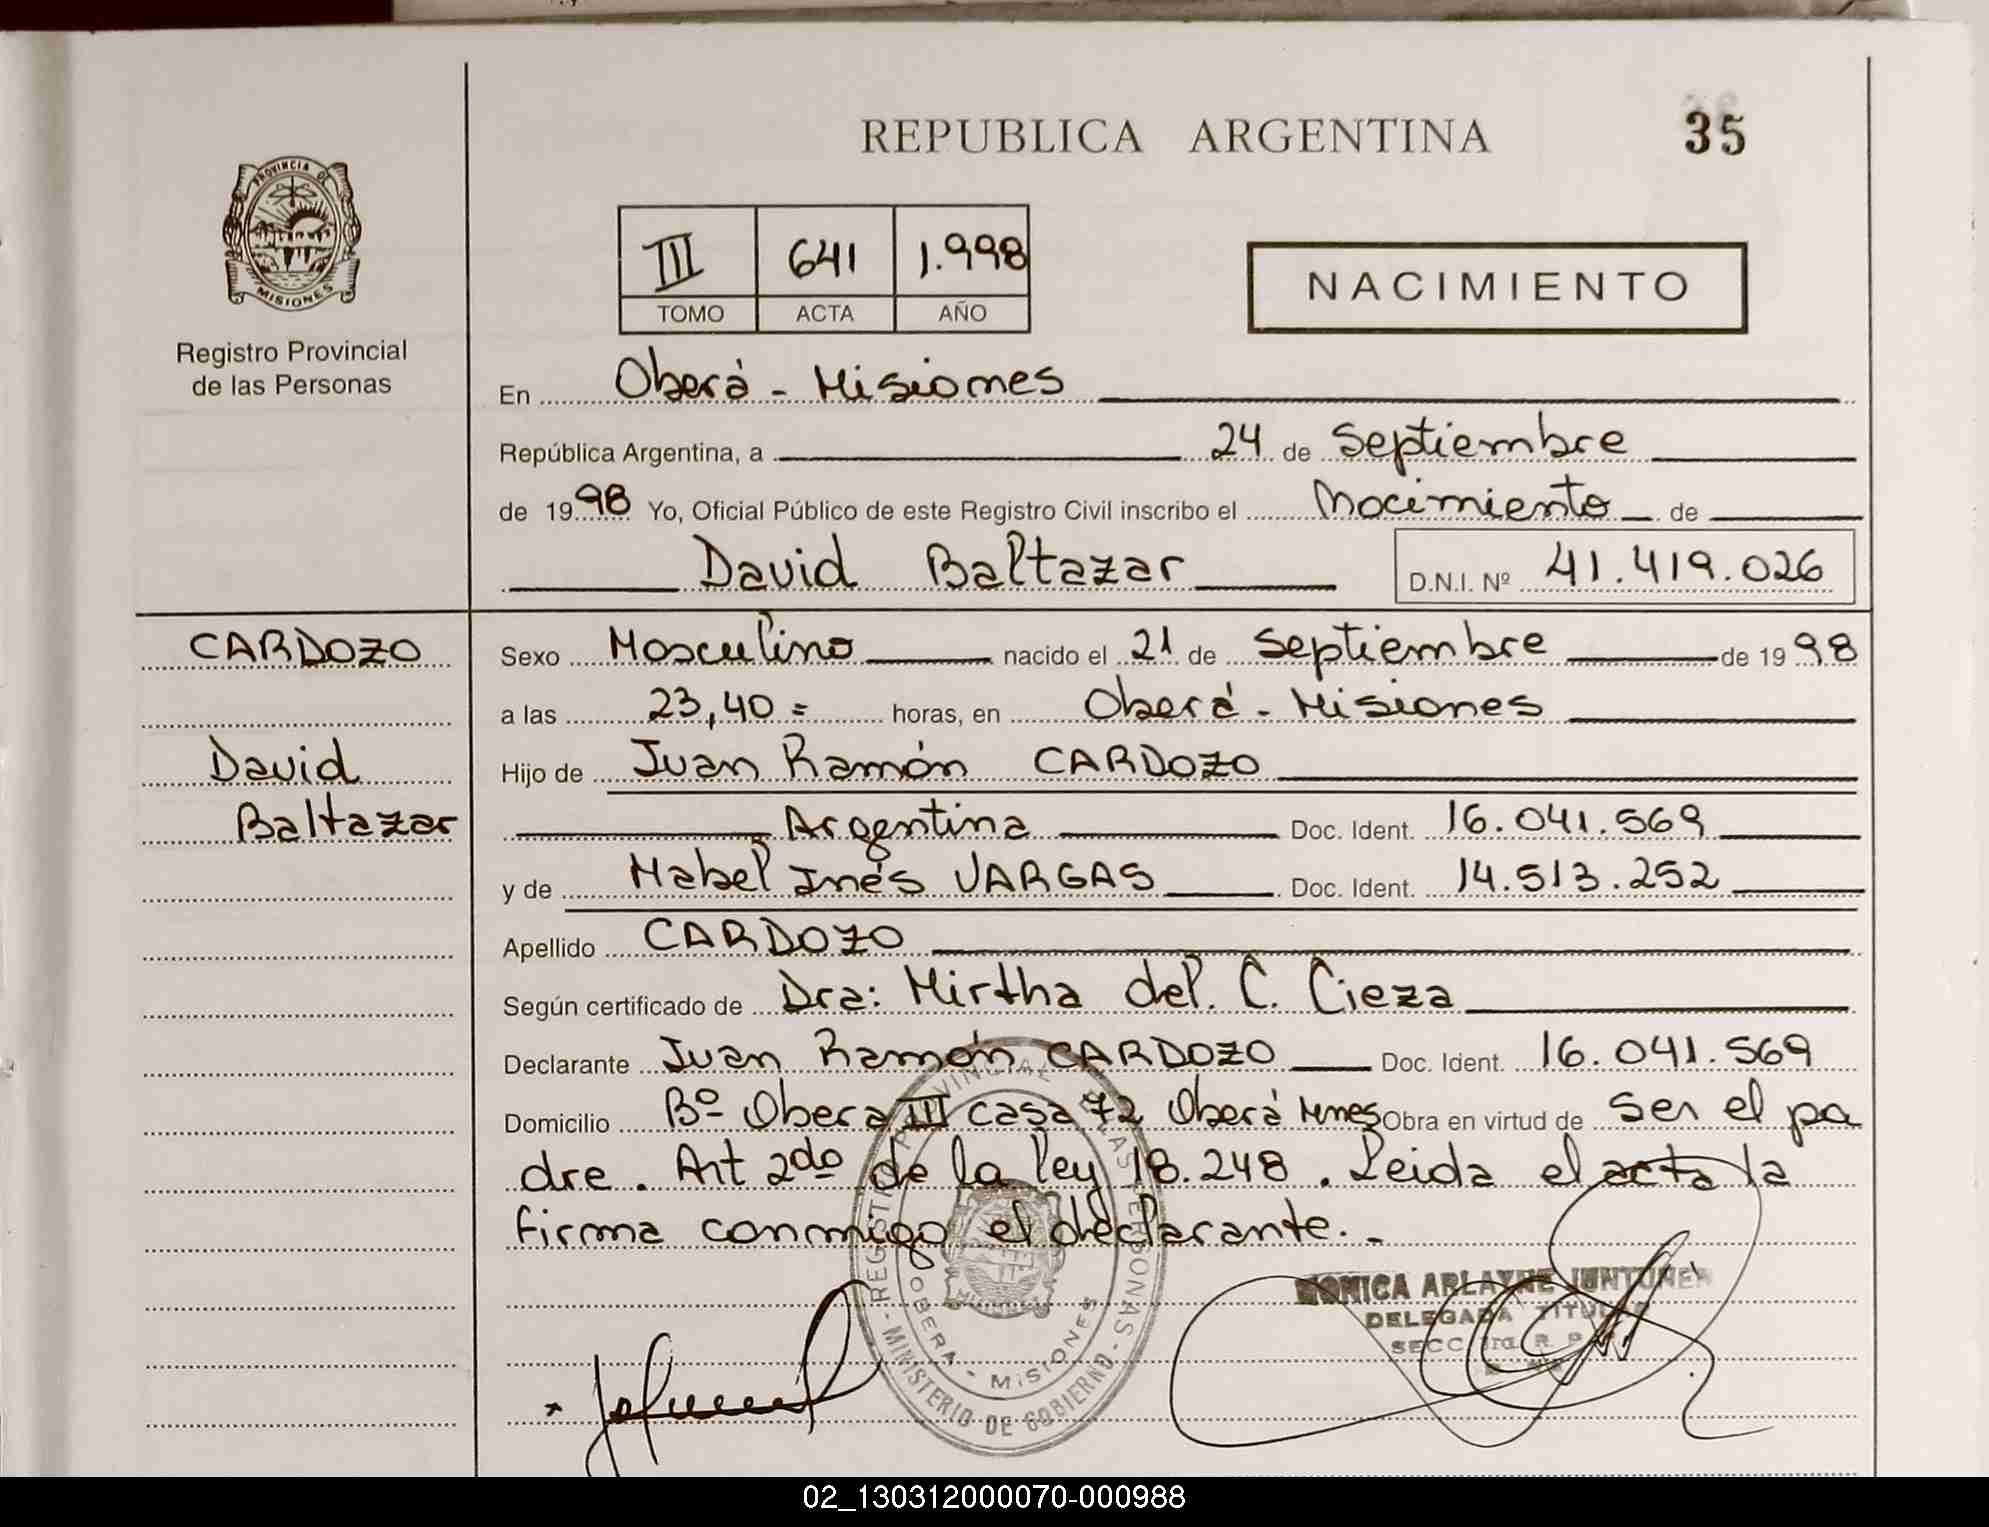 REPUBLICA ARGENTINA
35
PROVINCIA DE
MISIONES
Registro Provincial
de las Personas
III 641 1.998
TOMO ACTA AÑO
NACIMIENTO
En Oberá - Misiones
República Argentina, a 24 de Septiembre
de 1998 Yo, Oficial Público de este Registro Civil inscribo el Nacimiento de
David Baltazar D.N.I. Nº 41.419.026
CARDOZO
David
Baltazar
Sexo Masculino nacido el 21 de Septiembre de 1998
a las 23,40 = horas, en Oberá - Misiones
Hijo de Juan Ramón CARDOZO
Argentina Doc. Ident. 16.041.569
y de Mabel Inés VARGAS Doc. Ident. 14.513.252
Apellido CARDOZO
Según certificado de Dra: Mirtha del. C. Cieza
Declarante Juan Ramón CARDOZO Doc. Ident. 16.041.569
Domicilio Bº Obera III casa 72 Oberá Mnes Obra en virtud de ser el pa
dre. Art 2do de la ley 18.248. Leida el acta la
firma conmigo el declarante.-
REGISTRO PROVINCIAL DE LAS PERSONAS
OBERA - MISIONES
- MINISTERIO DE GOBIERNO -
MONICA ARLAYNE
DELEGADA TITULAR
SECC 1ra. R. P.
02_130312000070-000988